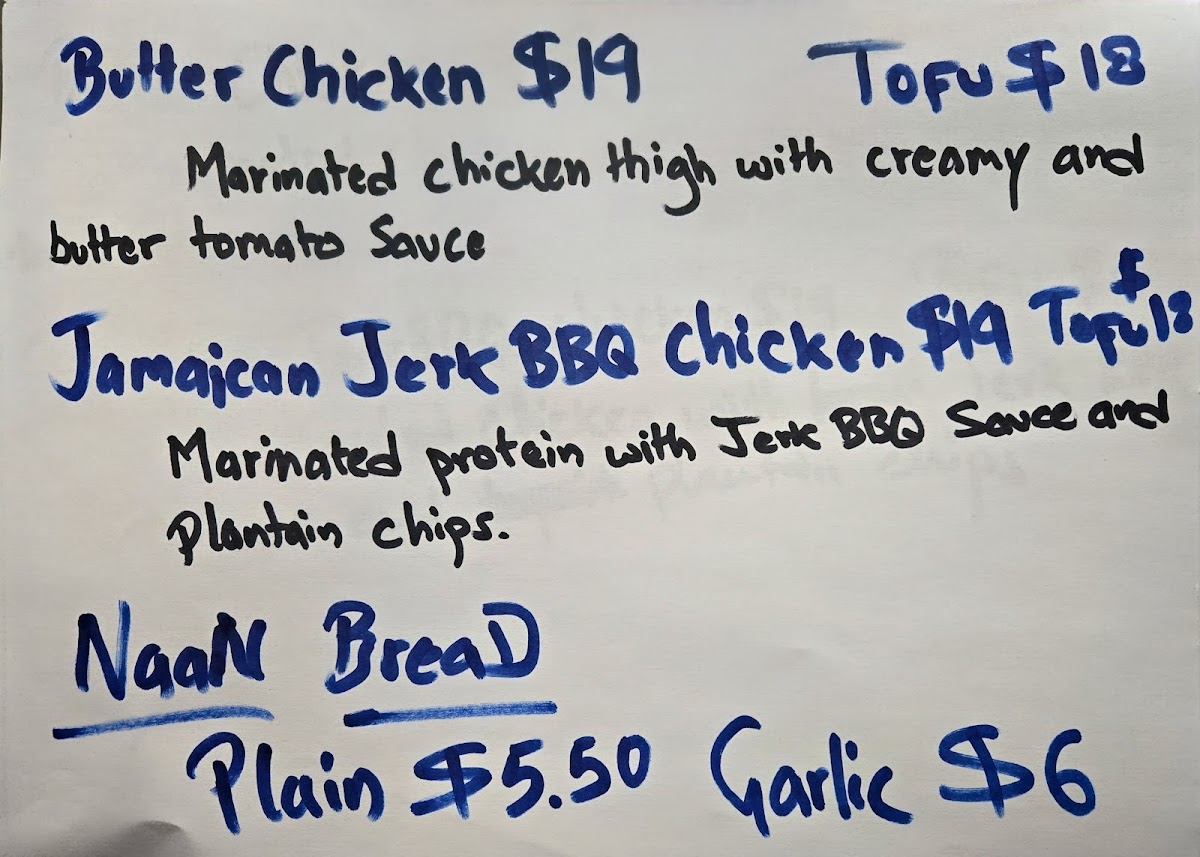 Butter Chicken $19 Tofu $18
Marinated chicken thigh with creamy and
butter tomato Sauce
Jamaican Jerk BBQ Chicken $19 Tofu $18
Marinated protein with Jerk BBQ Sauce and
Plantain chips.
NaaN BreaD
Plain $5.50 Garlic $6